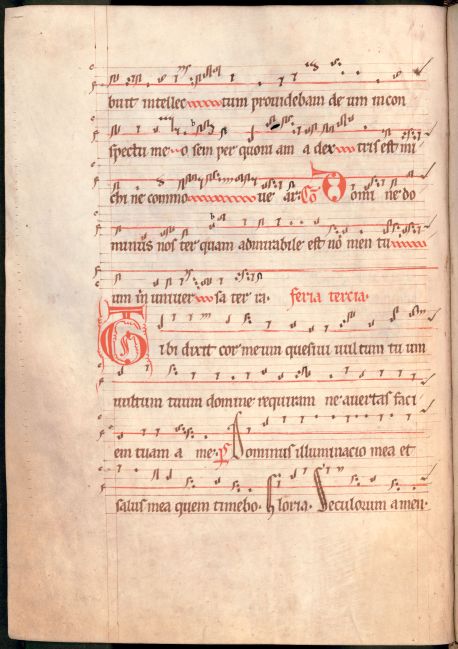 buit intellec tum providebam de um in con
spectu me o sem per quoni am a dex tris est mi
chi ne commo ve ar. Co Domi ne do
minus nos ter quam admirabile est no men tu
um in univer sa ter ra. feria tercia.
Tibi dixit cor meum quesivi vultum tu um
vultum tuum domine requiram ne avertas faci
em tuam a me. p Dominus illuminacio mea et
salus mea quem timebo. Gloria. Seculorum amen.